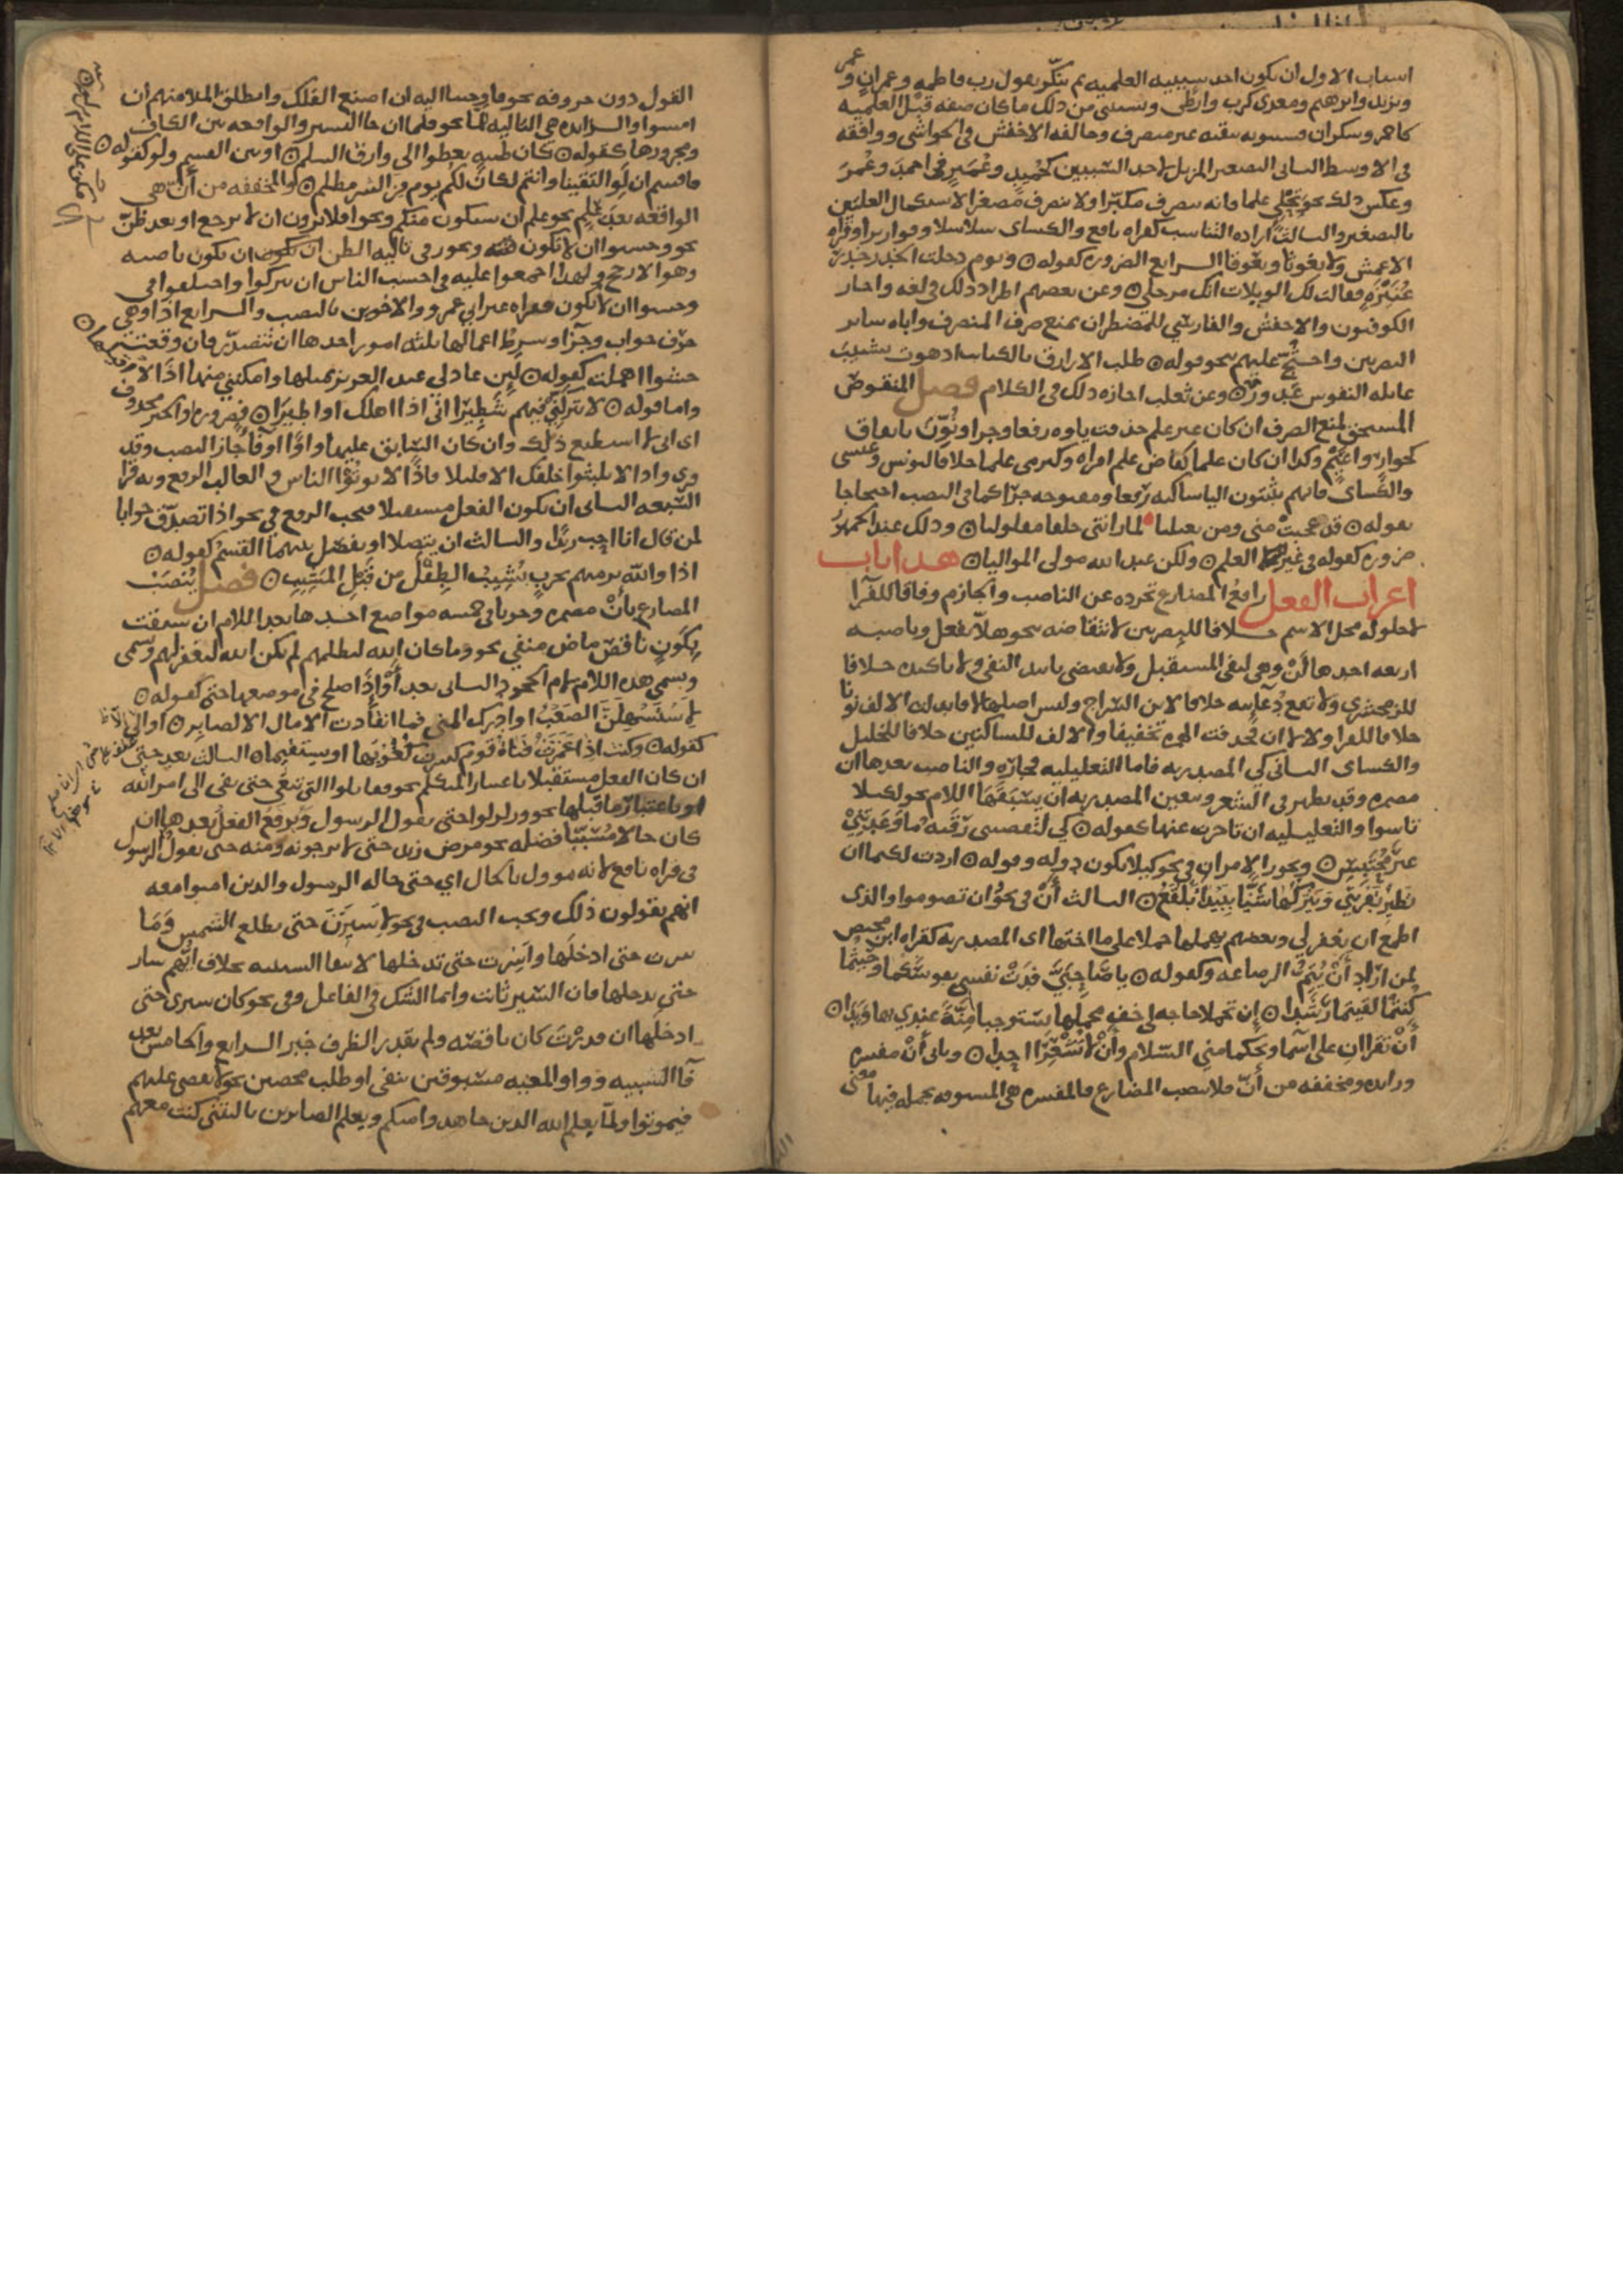 اسباب الاول ان يكون احد سببيه العلميه ثم ينكر بقول رب فاطمه وعمران وعمر
ويزيد وابرهيم ومعدي كرب وارطى ويستثنى من ذلك ما كان صفه قبل العلميه
كاحمر وسكران فسيبويه يبقيه غير منصرف وخالفه الاخفش في الحواشي ووافقه
في الاوسط الثاني التصغير المزيل لاحد السببين كحميد وعمير في احمد وعمر
وعكس ذلك نحو تحلئ علما فانه ينصرف مكبرا ولا ينصرف مصغرا لاستكمال العلتين
بالتصغير والثالث اراده التناسب كقراه نافع والكساى سلاسلا وقواريرا وقراه
الاعمش ولا يغوثا ويعوقا الرابع الضروره كقوله ۞ ويوم دخلت الخدر خدر
عنيزة فقالت لك الويلات انك مرجلي ۞ وعن بعضهم اطراد ذلك في لغه واجاز
الكوفيون والاخفش والفارسي للمضطر ان يمنع صرف المنصرف واباه ساير
البصريين واحتج عليهم بنحو قوله ۞ طلب الازارق بالكتايب اذ هوت بشبيب
غايله النفوس غدور ۞ وعن ثعلب اجازه ذلك في الكلام فصل المنقوص
المستحق لمنع الصرف ان كان غير علم حذفت ياوه رفعا وجرا ونون باتفاق
كجوار واعيم وكذا ان كان علما كقاض علم امراه وكيرمى علما خلافا ليونس وعيسى
والكساى فانهم يثبتون اليا ساكنه رفعا ومفتوحه جرا كما في النصب احتجاجا
بقوله ۞ قد عجبت منى ومن يعيليا لما راتنى خلقا مقلوليا ۞ وذلك عند الجمهور
ضروره كقوله في غير العلم ۞ ولكن عبد الله مولى المواليا ۞ هذا باب
اعراب الفعل رافع المضارع تجرده عن الناصب والجازم وفاقا للفرا
لا حلوله محل الاسم خلافا للبصريين لانتقاضه بنحو هلا تفعل وناصبه
اربعه احدها لن وهي لنفي المستقبل ولا يقتضي تابيد النفي ولا تاكيده خلافا
للزمخشري ولا تقع دعاييه خلافا لابن السراج وليس اصلها لا فابدلت الالف نونا
خلافا للفرا ولا لا ان فحذفت الهمزه تخفيفا والالف للساكنين خلافا للخليل
والكساى الثاني كي المصدريه فاما التعليليه فجارة والناصب بعدها ان
مضمره وقد تظهر في الشعر وتتعين المصدريه ان يسبقها اللام نحو لكيلا
تاسوا والتعليليه ان تاخرت عنها كقوله ۞ كي لتقضيني رقيه ما وعدتني
غير مختلس ۞ ويجوز الامران في نحو كيلا يكون دوله وقوله ۞ اردت لكيما ان
تطير بقربتي وتتركها شنا ببيداء بلقع ۞ الثالث أن في نحو ان تصوموا والذى
اطمع ان يغفر لي وبعضهم يهملها حملا على ما اختها اى المصدريه كقراه ابن محيصن
لمن اراد أن يتم الرضاعه وكقوله ۞ يا صاحبي فدت نفسي نفوسكما وحيثما
كنتما لقيتما رشدا ۞ ان تحملا حاجه لي خف محملها تستوجبا منة عندي بها ويدا ۞
أن تقرآن على اسما ويحكما مني السلام وأن لا تشعرا احدا ۞ وتاتي أن مفسره
وزايده ومخففه من أن فلا تنصب المضارع فالمفسره هي المسبوقه بجمله فيها معنى
القول دون حروفه نحو فاوحينا اليه ان اصنع الفلك وانطلق الملا منهم ان
امشوا والزايده هي التاليه لما نحو فلما ان جا البشير والواقعه بين الكاف
ومجرورها كقوله ۞ كان ظبيه تعطوا الي وارق السلم ۞ او بين القسم ولو كقوله ۞
فاقسم ان لو التقينا وانتم لكان لكم يوم من الشر مظلم ۞ والمخففه من أن هي
الواقعه بعد علم نحو علم ان سيكون منكم ونحو افلا يرون ان لا يرجع او بعد ظن
نحو وحسبوا ان لا تكون فتنه ويجوز في تاليه الظن ان تكون ناصبه
وهو الارجح ولهذا اجمعوا عليه في احسب الناس ان يتركوا واختلفوا في
وحسبوا ان لا تكون فقراه غير ابي عمرو والاخوين بالنصب والرابع اذا وهي
حرف جواب وجزا وشرط اعمالها ثلثه امور احدها ان تتصدر فان وقعت
حشوا اهملت كقوله ۞ لين عاد لي عبد العزيز بمثلها وامكنني منها اذا لا اقيلها ۞
واما قوله ۞ لا تتركني فيهم شطيرا اني اذا اهلك او اطيرا ۞ فضروره او الخبر محذوف
اى اني لا استطيع ذلك وان كان السابق عليها واوا او فا جاز النصب وقد
قري واذا لا يلبثوا خلفك الا قليلا فاذا لا يوتوا الناس والغالب الرفع وبه قرا
السبعه الثاني ان يكون الفعل مستقبلا فيجب الرفع في نحو اذا تصدق جوابا
لمن قال انا احب زيدا والثالث ان يتصلا او يفصل بينهما القسم كقوله ۞
اذا والله نرميهم بحرب تشيب الطفل من قبل المشيب ۞ فصل ينصب
المضارع بأن مضمره وجوبا في خمسه مواضع احدها بعد اللام ان سبقت
بكون ناقص ماض منفي نحو وما كان الله ليظلمهم لم يكن الله ليغفر لهم وسمى
وتسمى هذه اللام لام الجحود الثاني بعد أو اذا صلح في موضعها حتى كقوله ۞
لاستسهلن الصعب او ادرك المنى فما انقادت الامال الا لصابر ۞ او الا
كقوله ۞ وكنت اذا غمزت قناة قوم كسرت كعوبها او تستقيما ۞ الثالث بعد حتى
ان كان الفعل مستقبلا باعتبار التكلم نحو فقاتلوا التي تبغي حتى تفي الى امر الله
او باعتبار ما قبلها نحو وزلزلوا حتى يقول الرسول ويرفع الفعل بعدها ان
كان حالا مسببا فضله نحو مرض زيد حتى لا يرجونه ومنه حتى يقول الرسول
في قراه نافع لانه موول بالحال اي حتى حاله الرسول والذين امنوا معه
انهم يقولون ذلك ويجب النصب في نحو لاسيرن حتى تطلع الشمس وما
سرت حتى ادخلها واسرت حتى تدخلها لانتفا السببيه بخلاف ايهم سار
حتى يدخلها فان السير ثابت وانما الشك في الفاعل وفي نحو كان سيرى حتى
ادخلها ان قدرت كان ناقصه ولم تقدر الظرف خبرا الرابع والخامس بعد
فآ السببيه وواو المعيه مسبوقين بنفي او طلب محضين نحو لا يقضى عليهم
فيموتوا ولما يعلم الله الذين جاهدوا منكم ويعلم الصابرين يا ليتني كنت معهم